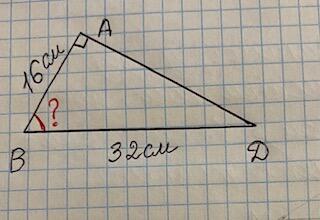 A
16см
?
B
32см
D